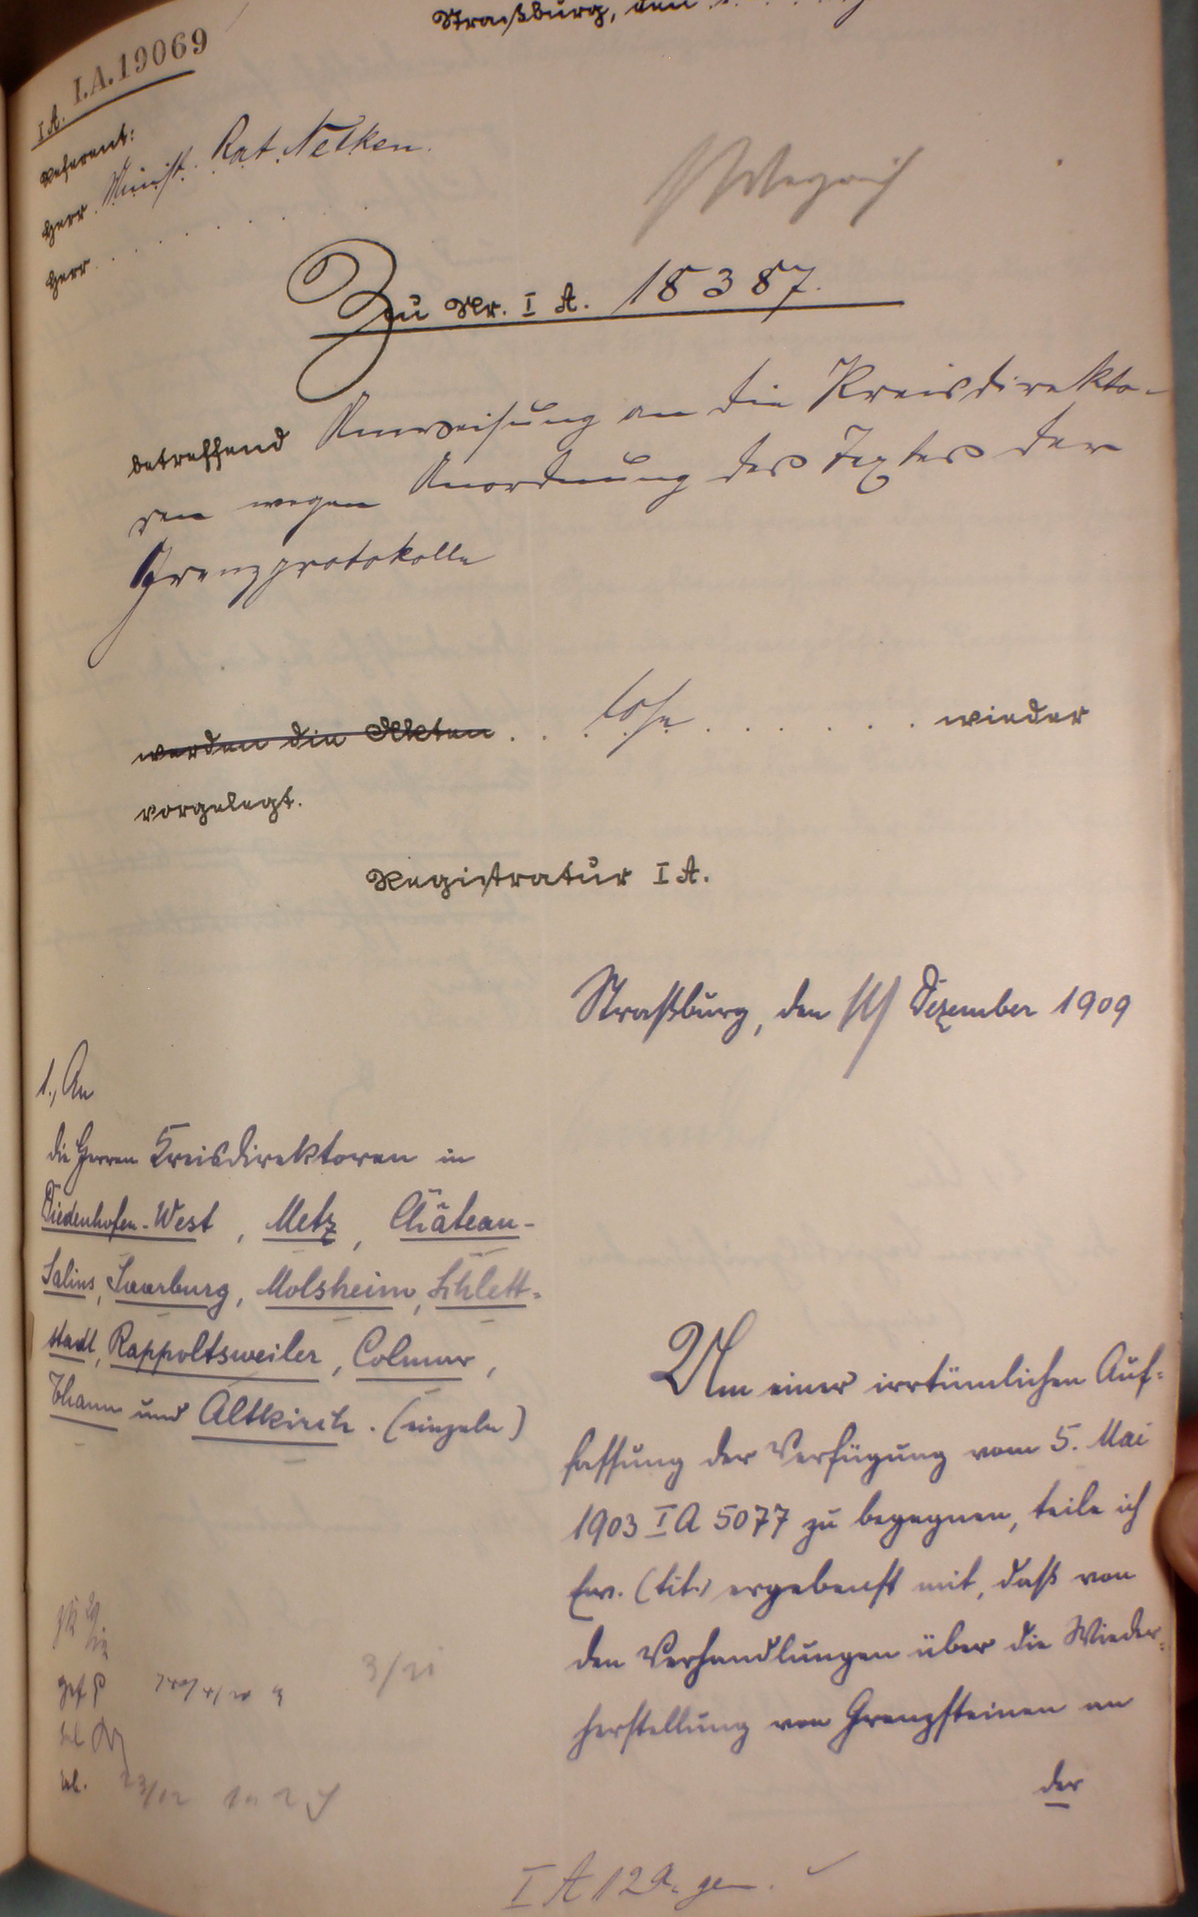 Straßburg, den
I.A. I.A.19069
Referent:
Herr Minist. Rat Nelken.
Herr
Zu Nr. I A. 18387.
betreffend Anweisung an die Kreisdirekto-
ren wegen Anordnung des Textes der
Grenzprotokolle
werden die Akten . . . lose . . . . . . . wieder
vorgelegt.
Registratur I A.
Straßburg, den Dezember 1909
1., An
die Herren Kreisdirektoren in
Diedenhofen-West, Metz, Château-
Salins, Saarburg, Molsheim, Schlett-
stadt, Rappoltsweiler, Colmar,
Thann und Altkirch. (einzeln)
Um einer irrtümlichen Auf-
fassung der Verfügung vom 5. Mai
1903 I A 5077 zu begegnen, teile ich
Ew. (tit.) ergebenst mit, daß von
den Verhandlungen über die Wieder-
herstellung von Grenzsteinen an
der
gef
3/21
23/12
I A 12a. gen.